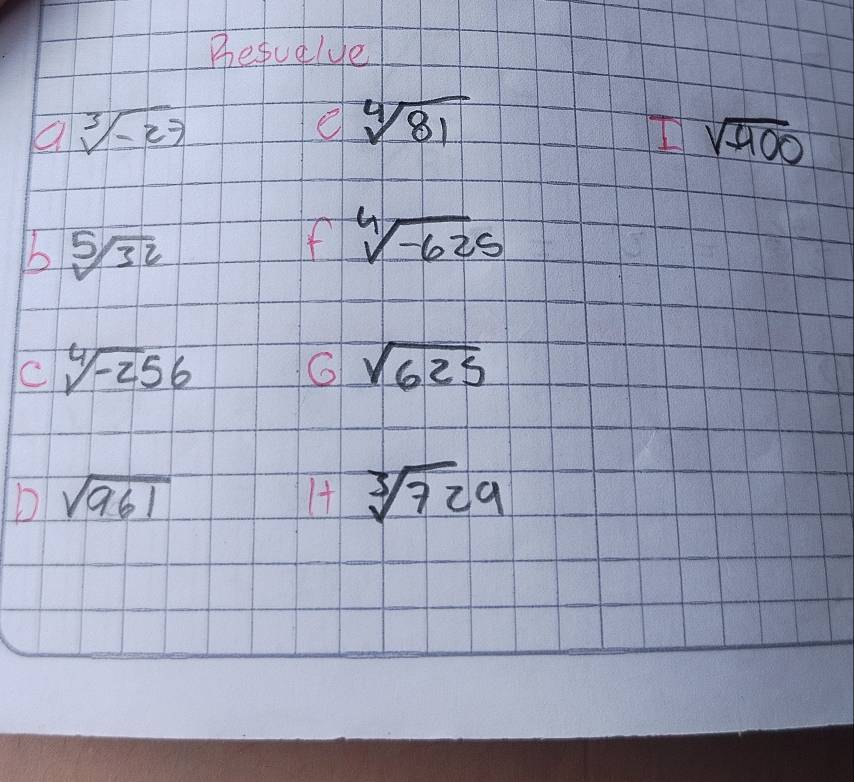 Resuelve
a ∛-27 e ∜81 I √-900
b ⁵√32 f ∜-625
C ∜-256 G √625
D √961 H ∛729